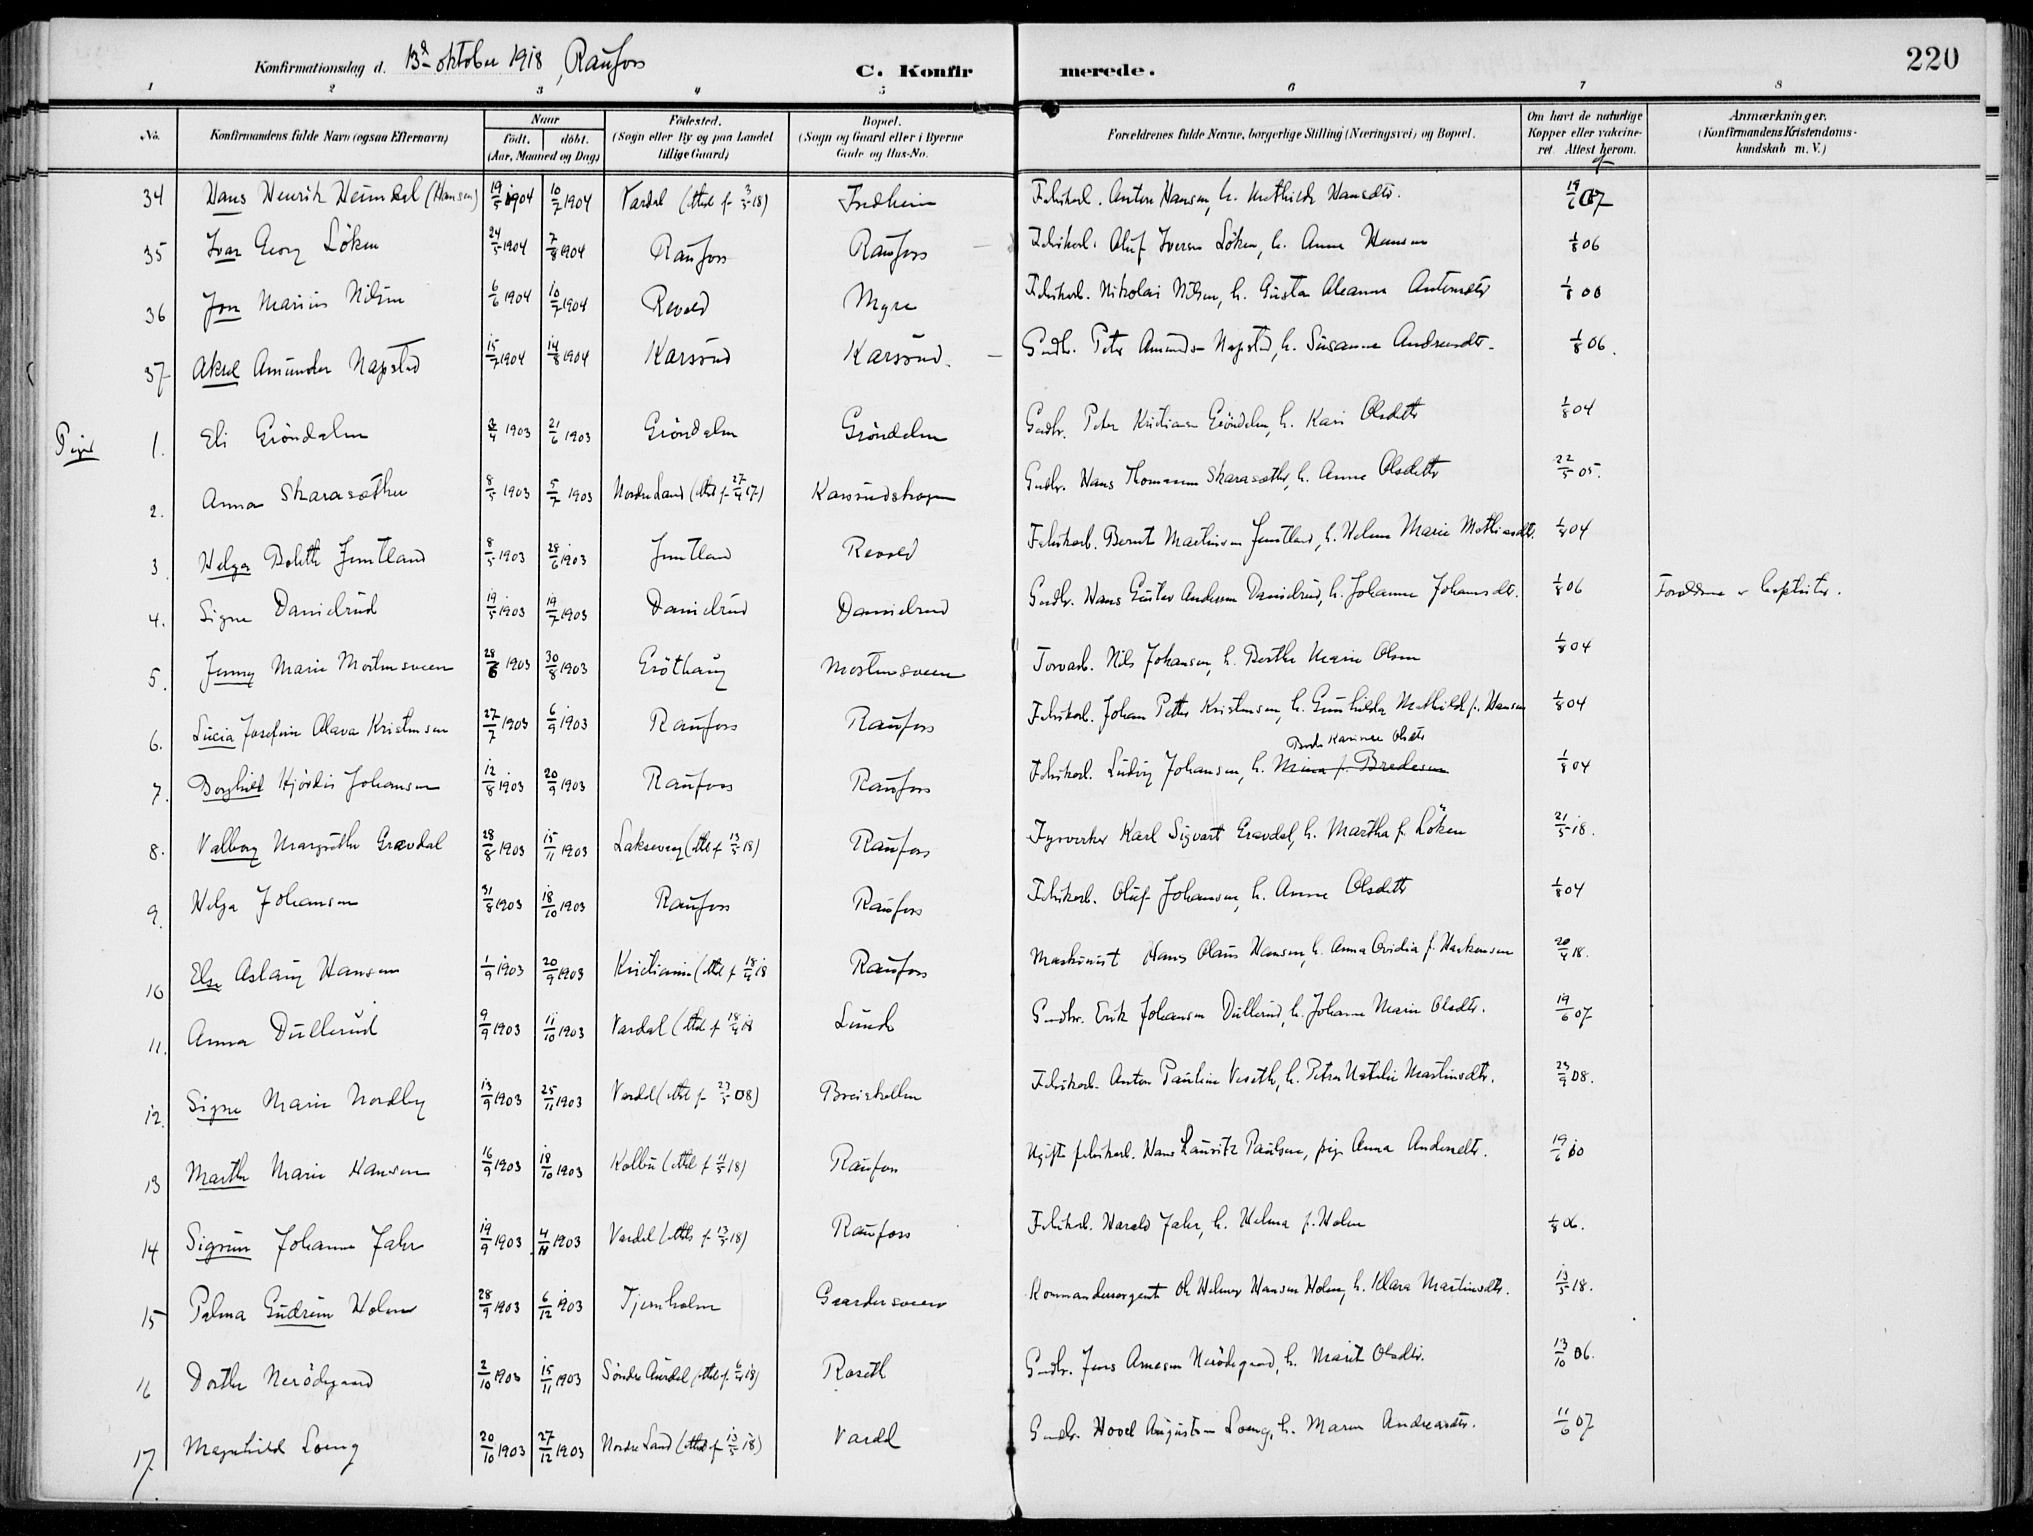 Konfirmationsdag d. 13de oktober 1918, Raufoss
C. Konfirmerede.
220
1 2 3 4 5 6 7 8
No. Konfirmandens fulde Navn (ogsaa Efternavn) Naar født. døbt. (Aar, Maaned og Dag) Fødested. (Sogn eller By og paa Landet tillige Gaard) Bopæl. (Sogn og Gaard eller i Byerne Gade og Hus-No. Forældrenes fulde Navne, borgerlige Stilling (Næringsvei) og Bopæl. Om havt de naturlige Kopper eller vakcineret. Attest herom. Anmærkninger. (Konfirmandens Kristendomskundskab m. V.)
34 Hans Henrik Heimdal (Hansen) 19/5 1904 10/7 1904 Vardal (Attest fr 3/5 18) Indheim Fabrikarb. Anton Hansen, h. Mathilde Hansdtr. 19/6 07
35 Ivar Georg Löken 24/5 1904 7/8 1904 Raufoss Raufoss Fabrikarb. Oluf Iversen Löken, h. Anna Hansen 1/8 06
36 Jon Marius Nilsen 6/6 1904 10/7 1904 Revold Myre Fabrikarb. Nikolai Nilsen, h. Gusta Oleanna Antonsdtr 1/8 06
37 Aksel Amundsen Napstad 15/7 1904 14/8 1904 Karsrud Karsrud. Gaardbr. Peter Amundsen Napstad, h. Susanne Andreasdtr. 1/8 06.
Piger 1. Eli Gröndalen 3/4 1903 21/6 1903 Gröndalen Gröndalen Gaardbr. Peter Kristiansen Gröndalen, h. Kari Olsdatter 1/8 04
2. Anna Skarasæther 8/5 1903 5/7 1903 Nordre Land (Attest fr 27/4 17) Karsrudskogen Gaardbr. Hans Thomassen Skarasæther, h. Anne Olsdatter 22/5 05.
3. Helga Bolette Jemtland 8/5 1903 28/6 1903 Jemtland Revold Fabrikarb. Bernt Martinsen Jemtland, h. Helene Marie Mathiasdtr. 1/8 04
4. Signe Danielrud 19/5 1903 19/7 1903 Danielrud Danielrud Gaardbr. Hans Gustav Andersen Danielrud, h. Johanne Johannsdtr. 1/8 06 Forældrene er baptister.
5. Jenny Marie Mortensveen 28/6 1903 30/8 1903 Gröthaug Mortensveen Torvarb. Nils Johansen, h. Berthe Marie Olsen 1/8 04
6. Lucia Josefine Olava Kristensen 27/7 1903 6/9 1903 Raufoss Raufoss Fabrikarb. Johan Petter Kristensen, h. Gunhilda Mathilde f. Hansen 1/8 04
7. Borghild Hjördis Johansen 12/8 1903 20/9 1903 Raufoss Raufoss Fabrikarb. Ludvig Johansen, h. Mina f. Bredesen Karinne Olsdtr 1/8 04
8. Valborg Margrethe Grævdal 28/8 1903 15/11 1903 Laksevaag (Attest fr 13/5 18) Raufoss Fyrverker Karl Sigvart Grævdal, h. Martha f. Löken 21/5 18.
9. Helga Johansen 31/8 1903 18/10 1903 Raufoss Raufoss Fabrikarb. Oluf Johansen, h. Anne Olsdatter 1/8 04
10 Else Aslaug Hansen 1/9 1903 20/9 1903 Kristiania (Attest fr 18/4 18 Raufoss Maskinist Hans Olaus Hansen, h. Anna Ovidia f. Haakensen 20/4 18.
11. Anna Dullerud 9/9 1903 11/10 1903 Vardal (Attest fr 18/4 18 Lund Gaardbr. Erik Johansen Dullerud, h. Johanne Marie Olsdtr. 19/6 07
12. Signe Marie Nordby 13/9 1903 25/11 1903 Vardal (Attest fr 23/5 08) Breiskallen Fabrikarb. Anton Pauline Veseth, h. Petra Natalie Martinsdtr. 23/9 08.
13 Marthe Marie Hansen 16/9 1903 18/10 1903 Kolbu (Attest fr 11/5 18) Raufoss Ugifte fabrikarb. Hans Lauritz Paulsen, pige Anna Andersdtr. 19/6 10
14 Sigrun Johanne Jahr 19/9 1903 4/11 1903 Vardal (Attest fr 13/5 18) Raufoss Fabrikarb. Harald Jahr, h. Helma f. Holm 1/8 06.
15 Palma Gudrun Holm 28/9 1903 6/12 1903 Tjernholm Gaardersveen Kommandersergent Ole Helmer Hansen Holm, h. Klara Martinsdtr. 13/5 18.
16 Dorthe Nerödegaard 2/10 1903 15/11 1903 Söndre Aurdal (Attest fr 6/4 18) Roseth Gaardbr. Jens Arnesen Nerödegaard, h. Marit Olsdtr. 13/10 06.
17 Magnhild Loeng 20/10 1903 27/12 1903 Nordre Land (Attest fr 13/5 18) Vardal Gaardbr. Hovel Augustsen Loeng, h. Maren Andreasdtr. 11/6 07